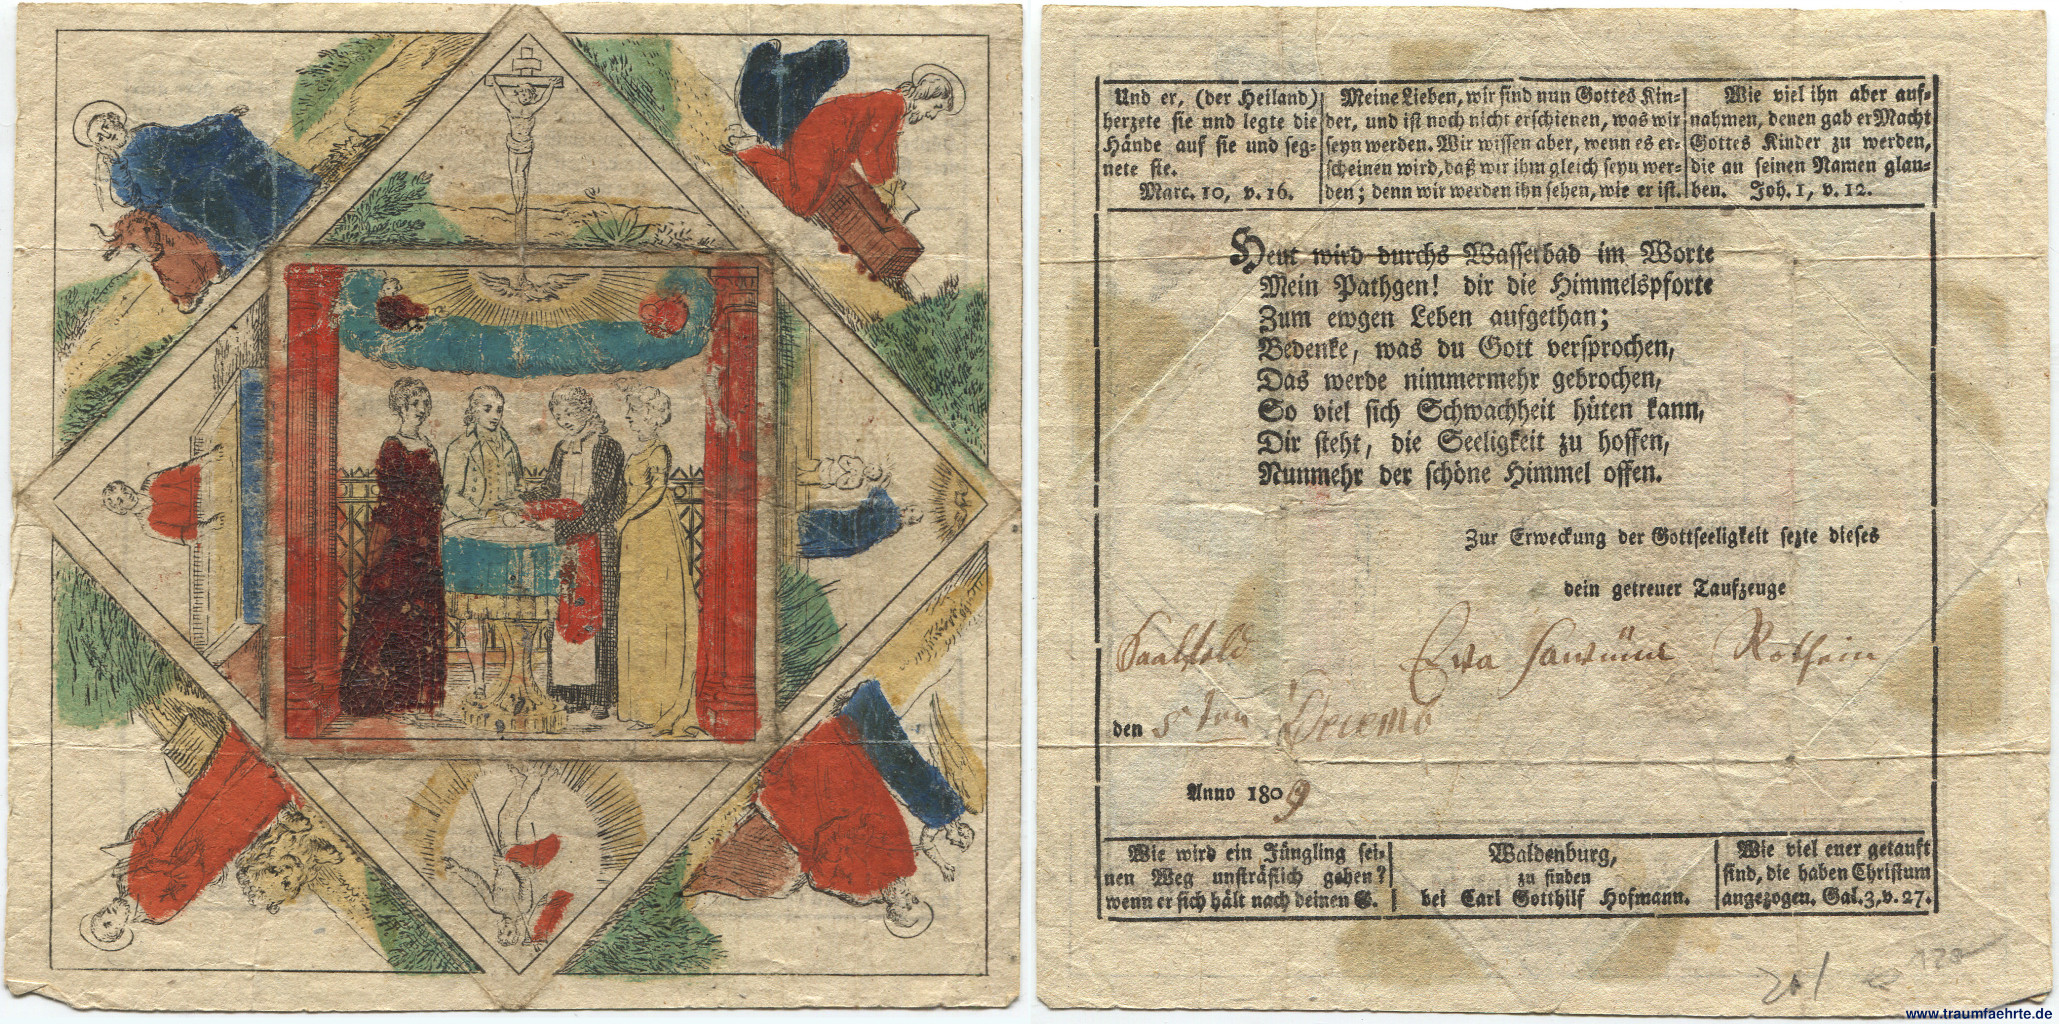 Und er, (der Heiland)
herzete sie und legte die
Hände auf sie und seg-
nete sie.
Marc. 10, v. 16.
Meine Lieben, wir sind nun Gottes Kin-
der, und ist noch nicht erschienen, was wir
seyn werden. Wir wissen aber, wenn es er-
scheinen wird, daß wir ihm gleich seyn wer-
den; denn wir werden ihn sehen, wie er ist.
Wie viel ihn aber auf-
nahmen, denen gab er Macht
Gottes Kinder zu werden,
die an seinen Namen glau-
ben. Joh. 1, v. 12.
Heut wird durchs Wasserbad im Worte
Mein Pathgen! dir die Himmelspforte
Zum ewgen Leben aufgethan;
Bedenke, was du Gott versprochen,
Das werde nimmermehr gebrochen,
So viel sich Schwachheit hüten kann,
Dir steht, die Seeligkeit zu hoffen,
Nunmehr der schöne Himmel offen.
Zur Erweckung der Gottseeligkeit sezte dieses
dein getreuer Taufzeuge
Saalfeld Eva Rothein
den 5 ten Decemb
Anno 1809
Wie wird ein Jüngling sei-
nen Weg unsträflich gehen?
wenn er sich hält nach deinen G.
Waldenburg,
zu finden
bei Carl Gotthilf Hofmann.
Wie viel euer getauft
sind, die haben Christum
angezogen. Gal. 3, v. 27.
www.traumfaehrte.de